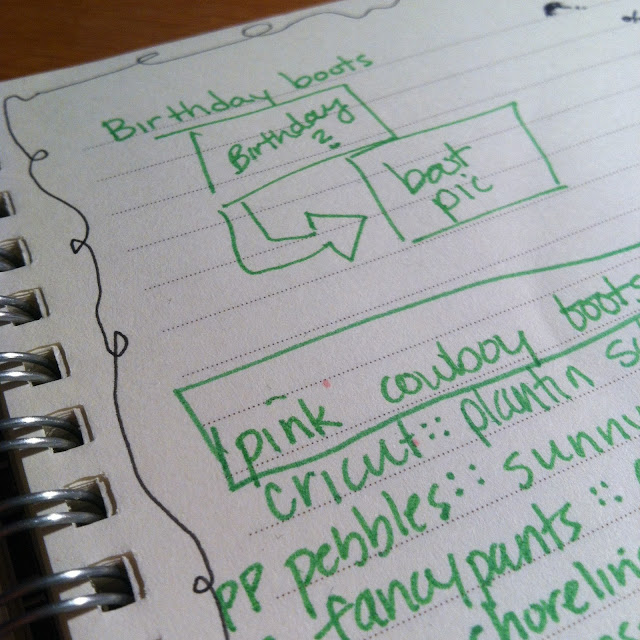 Birthday boots
Birthday
2
boot
pic
pink cowboy boots
cricut:: plantin s
pebbles:: sunny
PP fancypants::
shoreline